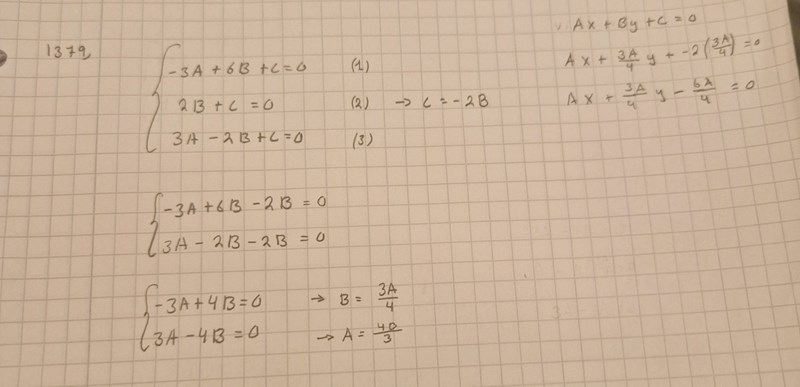 1379
-3A + 6B + C = 0 (1)
2B + C = 0 (2) → C = -2B
3A - 2B + C = 0 (3)
-3A + 6B - 2B = 0
3A - 2B - 2B = 0
-3A + 4B = 0 → B = 3A/4
3A - 4B = 0 → A = 4B/3
Ax + By + C = 0
Ax + 3A/4 y + -2(3A/4) = 0
Ax + 3A/4 y - 6A/4 = 0